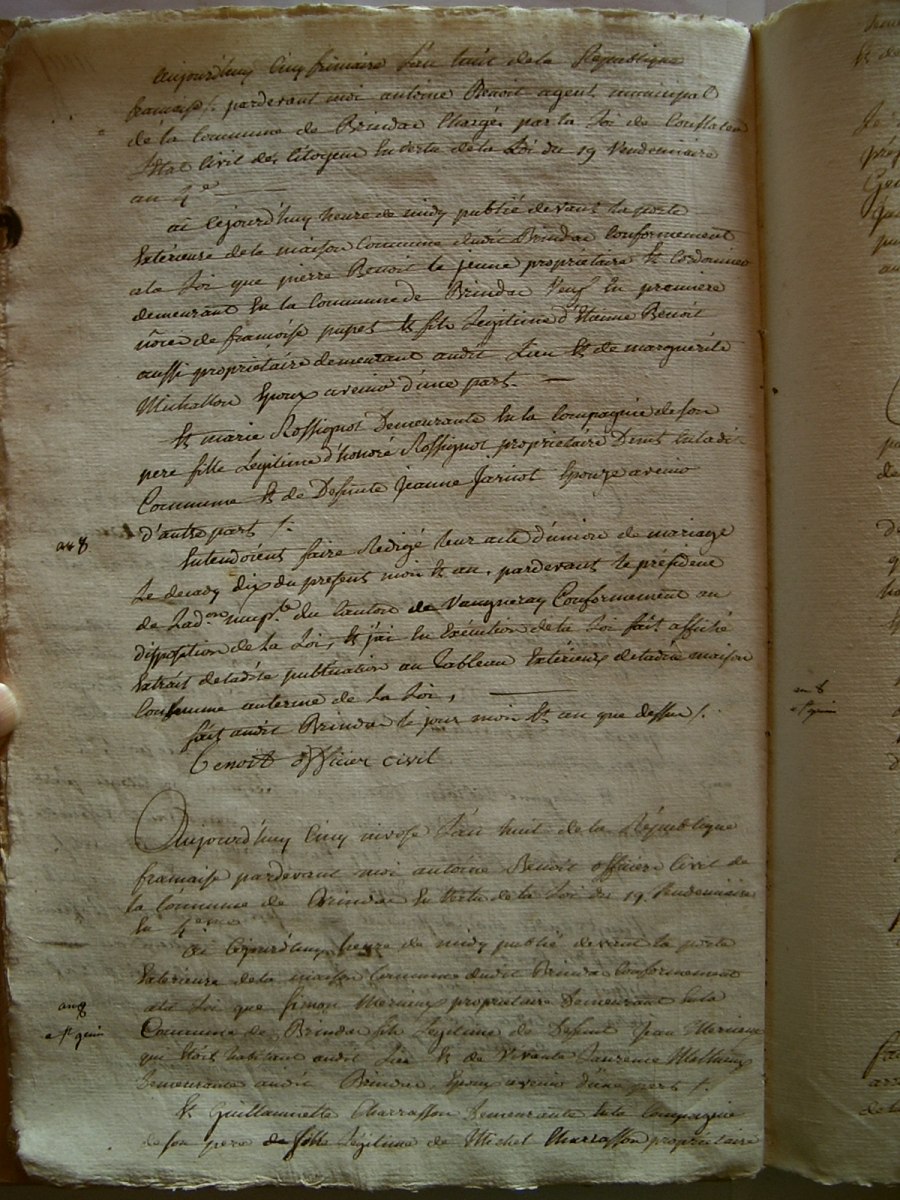 aujourd'huy cinq frimaire l'an huit de la République
francaise /. pardevant moi antoine Benoit agent municipal
de la commune de Brindas chargés par la Loi de Constater
L'etat Civil des Citoyens En vertu de la Loi du 19 Vendemiaire
an 4e
ai cejourd'huy heure de midy publié devant la porte
Extérieure de la maison Commune dudit Brindas Conformement
a la Loi que pierre Benoit le jeune proprietaire Et Cordonnier
demeurant En la Commune de Brindas Veuf En premiere
nôces de francoise pupet Et fils Légitime d'Etienne Benoit
aussi propriétaire demeurant audit Lieu Et de marguerite
Epoux avenir d'une part. —
Et marie Rossignol Demeurante En la Compagnie de son
pere fille Légitime d'honoré Rossignol propriétaire Dans la dite
Commune Et de Defunte Jeanne Jaricot Epouze avenir
d'autre part /.
an 8
Entendoient faire Rédigé leur acte d'union de mariage
Le decady dix du present mois Et an, pardevant le président
de Ladon muple du Canton de Vaugneray Conformement au
disposition de la Loi, Et j'ai En Exécution de la Loi fait affiché
Extrait de ladite publication au Tableau Extérieur de ladite maison
Commune auterme de La Loi, —
fait audit Brindas le jour mois Et an que dessus /.
Benoit officier civil
Aujourd'huy Cinq nivose l'an huit de la République
francaise pardevant moi antoine Benoit officier Civil de
la Commune de Brindas En Vertu de la Loi du 19 Vendemiaire
En 4eme
ai Cejourd'huy heure de midy publié devant la porte
Extérieure de la maison Commune dudit Brindas Conformement
ala Loi que Simon propriétaire Demeurant En la
an 8
Commune de Brindas fils Légitime de Defunt Jean
qui Etoit habitant audit Lieu Et de Vivante Laurence
Demeurante audit Brindas, Epoux avenir d'une part /.
Et Guillaumette Charrasson Demeurante En la Compagnie
de son pere de fille Légitime de Michel Charrasson propriétaire
an 8